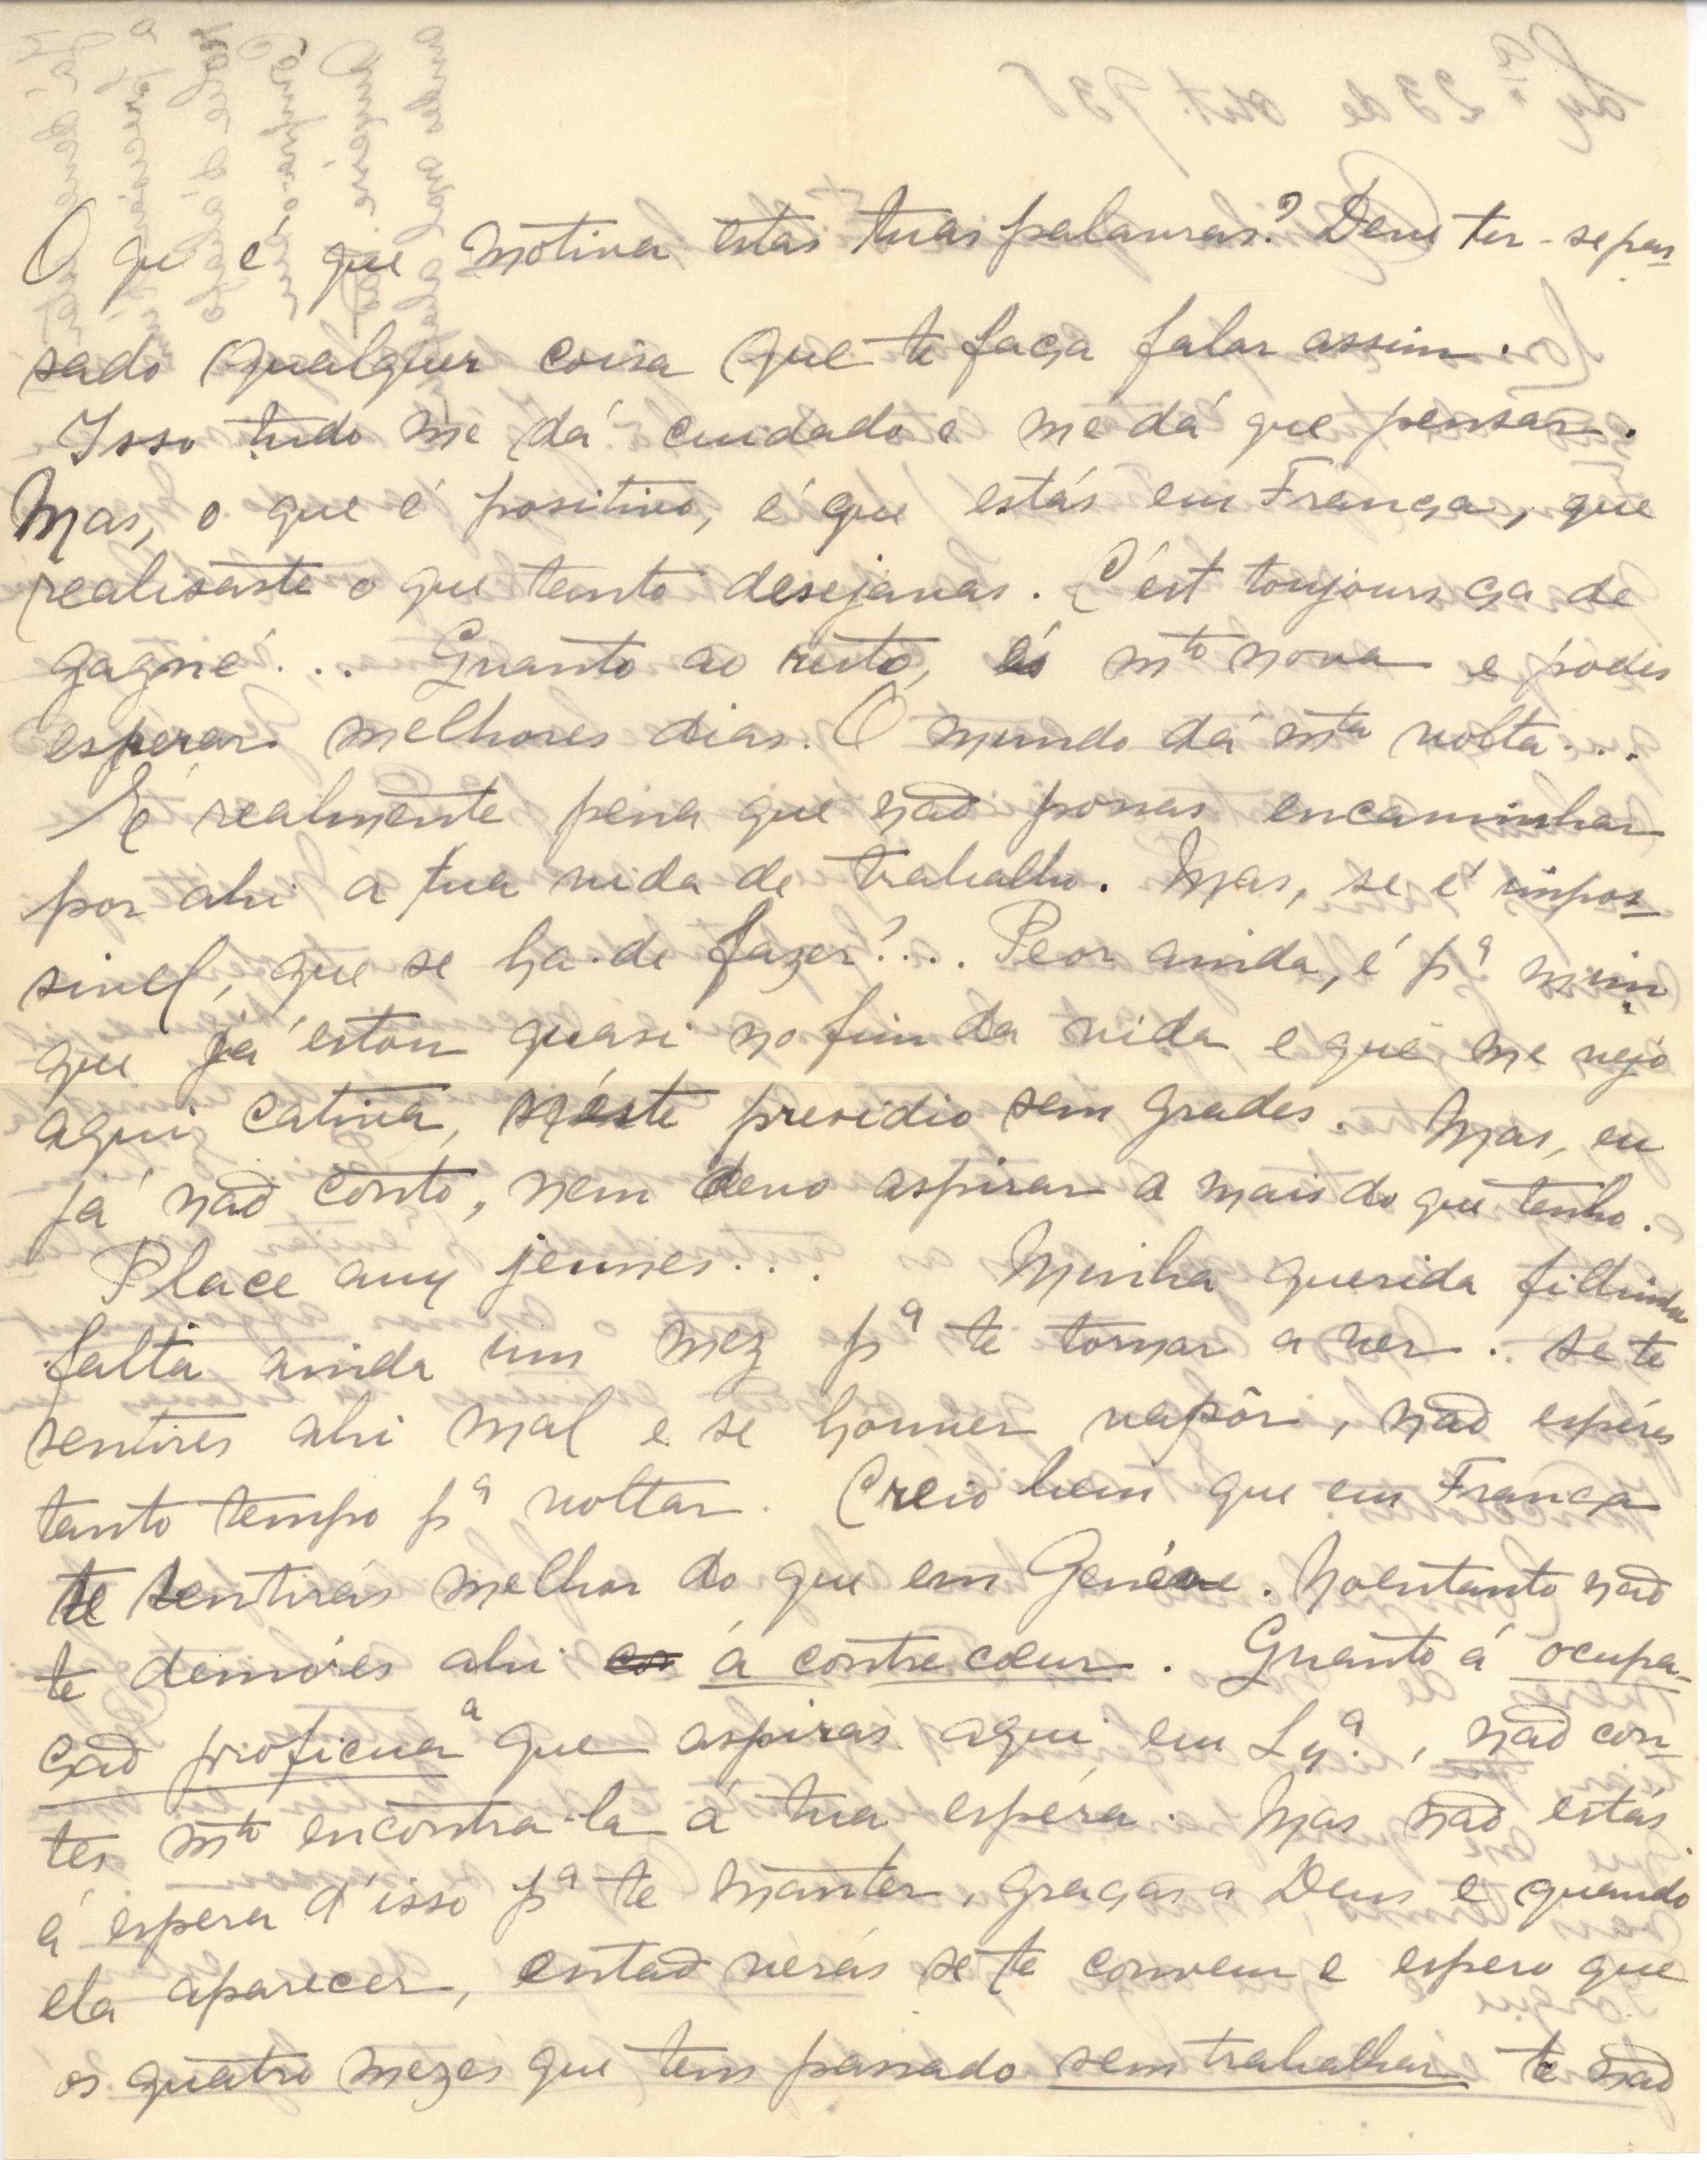 O que é que motiva estas tuas palavras? Deve ter-se pas-
sado qualquer coisa que te faça falar assim.
Isso tudo me dá cuidado e me dá que pensar.
Mas, o que é positivo, é que estás em França, que
realisáste o que tanto desejavas. C'ést toujours ça de
gagné... Quanto ao resto, és mto nova e pódes
esperar melhores dias. O mundo dá mta volta...
É realmente pena que não possas encaminhar
por ahi a tua vida de trabalho. Mas, se é impos-
sivel, que se ha-de fazer?... Peor ainda, é pa mim
que já estou quasi no fim da vida e que me vejo
aqui cativa, néste presidio sem grades. Mas, eu
já não conto, nem devo aspirar a mais do que tenho.
Place aux jeunes... Minha querida filhinha
falta ainda um mez pa te tornar a ver. Se te
sentires ahi mal e se houver vapôr, não espéres
tanto tempo pa voltar. Creio bem que em França
te sentirás melhor do que em Genéve. Noentanto não
te demóres ahi á contre coeur. Quanto á ocupa-
ção proficua a que aspiras aqui em Lxa., não con-
tes mto encontra-la á tua espéra. Mas não estás
á espera d'isso pa te manter, graças a Deus e quando
ela aparecer, então verás se te convem e espero que
os quatro mezes que tens passado sem trabalhar te não